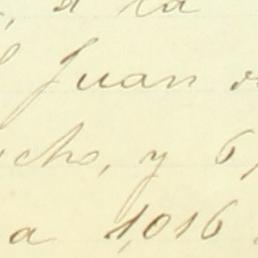 à la
Juan
cho, y 6,
a 1,016